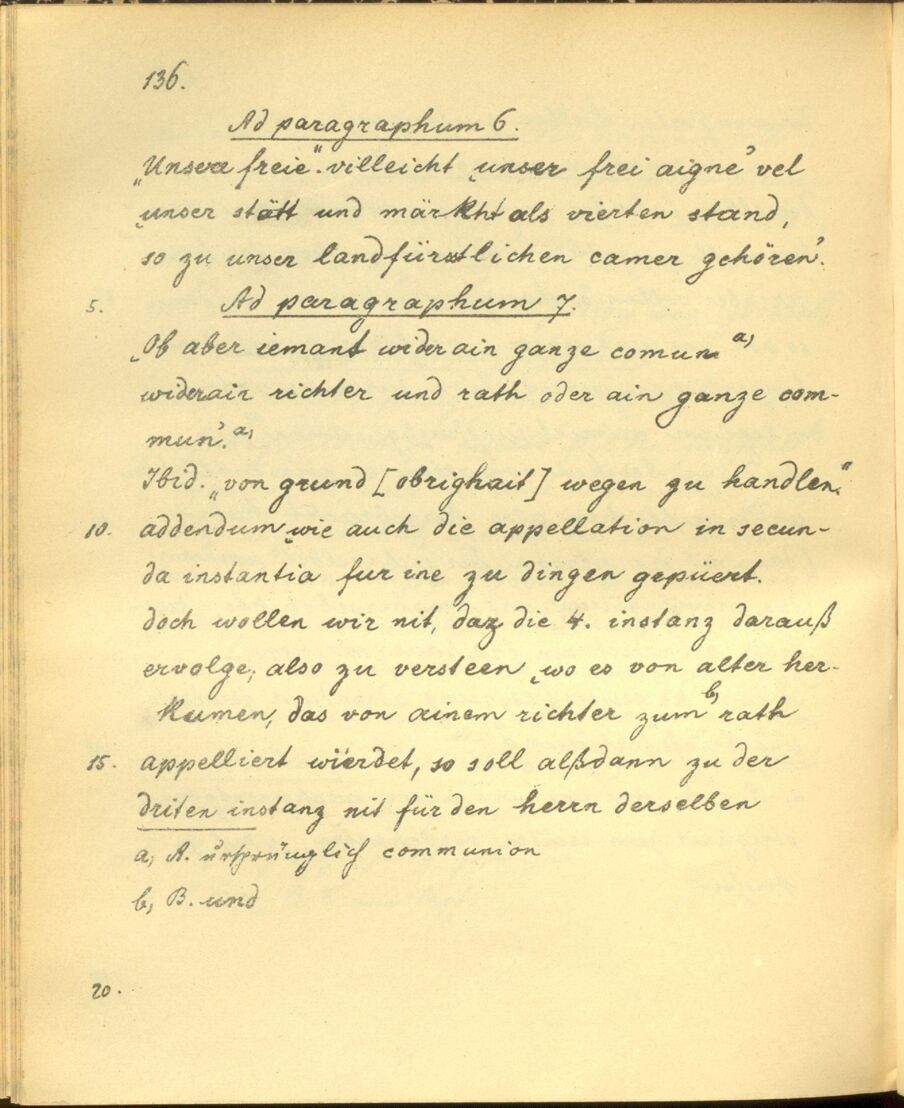 136.
Ad paragraphum 6.
„Unsere freie“. villeicht ‚unser frei aigne’ vel
‚unser stätt und märkht als vierten stand,
so zu unser landfürstlichen camer gehören’.
5. Ad paragraphum 7.
‚Ob aber iemant wider ain ganze comun a)
wider ain richter und rath oder ain ganze com-
mun’. a)
Ibid. „von grund [obrighait] wegen zu handlen“.
10. addendum ‚wie auch die appellation in secun-
da instantia fur ine zu dingen gepüert.
doch wollen wir nit, daz die 4. instanz darauß
ervolge, also zu versteen ‚wo es von alter her-
kumen, das von ainem richter zum b) rath
15. appelliert würdet, so soll alßdann zu der
driten instanz nit für den herrn derselben
a) A. ursprünglich communion
b) B. und
20.